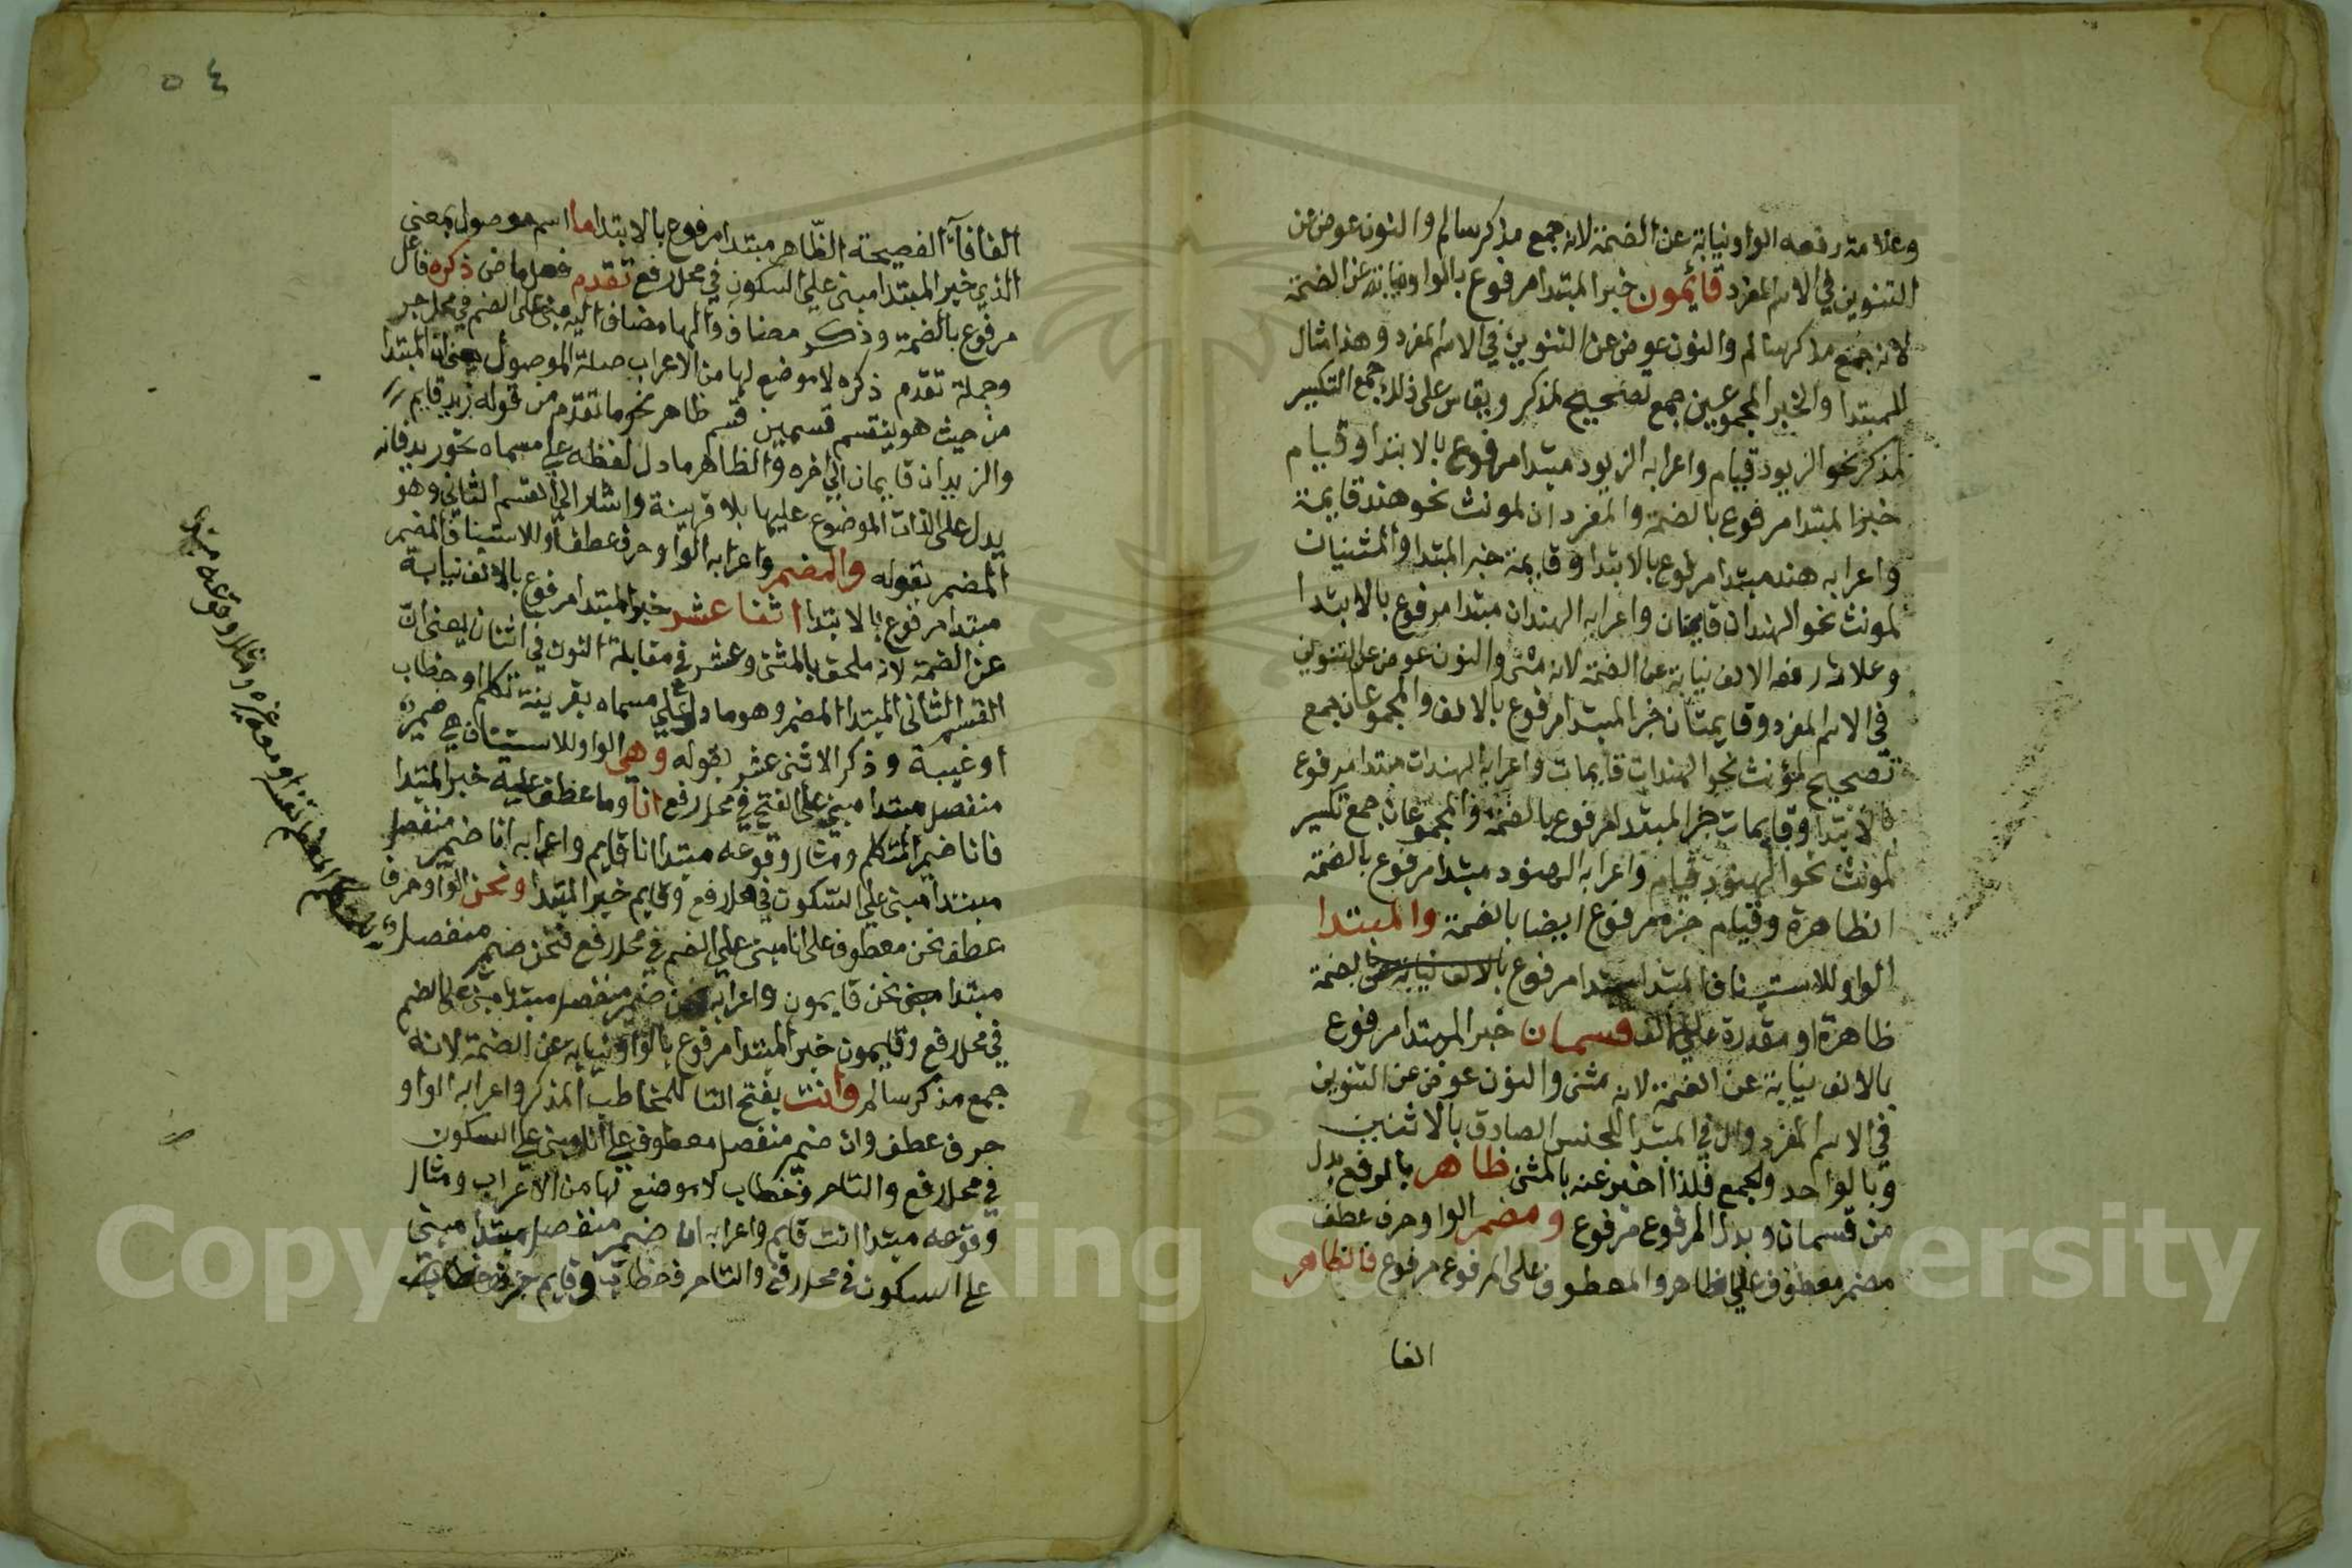 وعلامة رفعه الواو نيابة عن الضمة لانه جمع مذكر سالم والنون عوض عن
التنوين في الاسم المفرد قائمون خبر المبتدا مرفوع بالواو نيابة عن الضمة
لانه جمع مذكر سالم والنون عوض عن التنوين في الاسم المفرد وهذا مثال
للمبتدا والخبر المجموعين جمع تصحيح لمذكر ويقاس على ذلك جمع التكسير
لمذكر نحو الزيود قيام واعرابه الزيود مبتدا مرفوع بالابتدا وقيام
خبر المبتدا مرفوع بالضمة والمفردان لمونث نحو هند قايمة
واعرابه هند مبتدا مرفوع بالابتدا وقايمة خبر المبتدا والمثنيان
لمونث نحو الهندان قايمتان واعرابه الهندان مبتدا مرفوع بالابتدا
وعلامة رفعه الالف نيابة عن الضمة لانه مثنى والنون عوض عن التنوين
في الاسم المفرد وقايمتان خبر المبتدا مرفوع بالالف والمجموعان جمع
تصحيح لمؤنث نحو الهندات قايمات واعرابه الهندات مبتدا مرفوع
بالابتدا وقايمات خبر المبتدا مرفوع بالضمة والمجموعان جمع تكسير
لمونث نحو الهنود قيام واعرابه الهنود مبتدا مرفوع بالضمة
الظاهرة وقيام خبره مرفوع ايضا بالضمة والمبتدا
الواو للاستيناف المبتدا مبتدا مرفوع بالالف نيابة عن بضمة
ظاهرة او مقدرة على الالف قسمان خبر المبتدا مرفوع
بالالف نيابة عن الضمة لانه مثنى والنون عوض عن التنوين
في الاسم المفرد وال في المبتدا للجنس الصادق بالاثنين
وبالواحد والجمع فلذا اخبر عنه بالمثنى ظاهر بالرفع بدل
من قسمان وبدل المرفوع مرفوع ومضمر الواو حرف عطف
مضمر معطوف على ظاهر والمعطوف على المرفوع مرفوع فالظاهر
الفا
٥٤
الفا فآء الفصيحة الظاهر مبتدا مرفوع بالابتدا ما اسم موصول بمعنى
الذي خبر المبتدا مبني على السكون في محل رفع تقدم فعل ماض ذكره فاعل
مرفوع بالضمة وذكر مضاف والها مضاف اليه مبني على الضم في محل جر
وجملة تقدم ذكره لا موضع لها من الاعراب صلة الموصول يعني ان المبتدا
من حيث هو ينقسم قسمين قسم ظاهر نحو ما تقدم من قوله زيد قايم
والزيدان قايمان الى اخره والظاهر ما دل لفظه على مسماه نحو زيد فانه
يدل على الذات الموضوع عليها بلا قرينة واشار الى القسم الثاني وهو
المضمر بقوله والمضمر واعرابه الواو حرف عطف او للاستيناف المضمر
مبتدا مرفوع بالابتدا اثنا عشر خبر المبتدا مرفوع بالالف نيابة
عن الضمة لانه ملحق بالمثنى وعشر في مقابلة النون في اثنان يعني ان
القسم الثاني المبتدا المضمر وهو ما دل على مسماه بقرينة تكلم او خطاب
او غيبة وذكر الاثني عشر بقوله وهي الواو للاستيناف هي ضمير
منفصل مبتدا مبني على الفتح في محل رفع انا وما عطف عليه خبر المبتدا
فانا ضمير المتكلم ومثال وقوعه مبتدا انا قايم واعرابه انا ضمير منفصل
مبتدا مبني على السكون في محل رفع وقايم خبر المبتدا ونحن الواو حرف
عطف نحن معطوف على انا مبني على الضم في محل رفع فنحن ضمير منفصل
مبتدا نحن قايمون واعرابه نحن ضمير منفصل مبتدا مبني على الضم
في محل رفع وقايمون خبر المبتدا مرفوع بالواو نيابة عن الضمة لانه
جمع مذكر سالم وانت بفتح التا للمخاطب المذكر واعرابه الواو
حرف عطف وان ضمير منفصل معطوف على انا مبني على السكون
في محل رفع والتا حرف خطاب لا موضع لها من الاعراب ومثال
وقوعه مبتدا انت قايم واعرابه ان ضمير منفصل مبتدا مبني
على السكون في محل رفع والتا حرف خطاب وقايم
للمتكلم المعظم نفسه او معه غيره ومثال وقوعه مبتدا